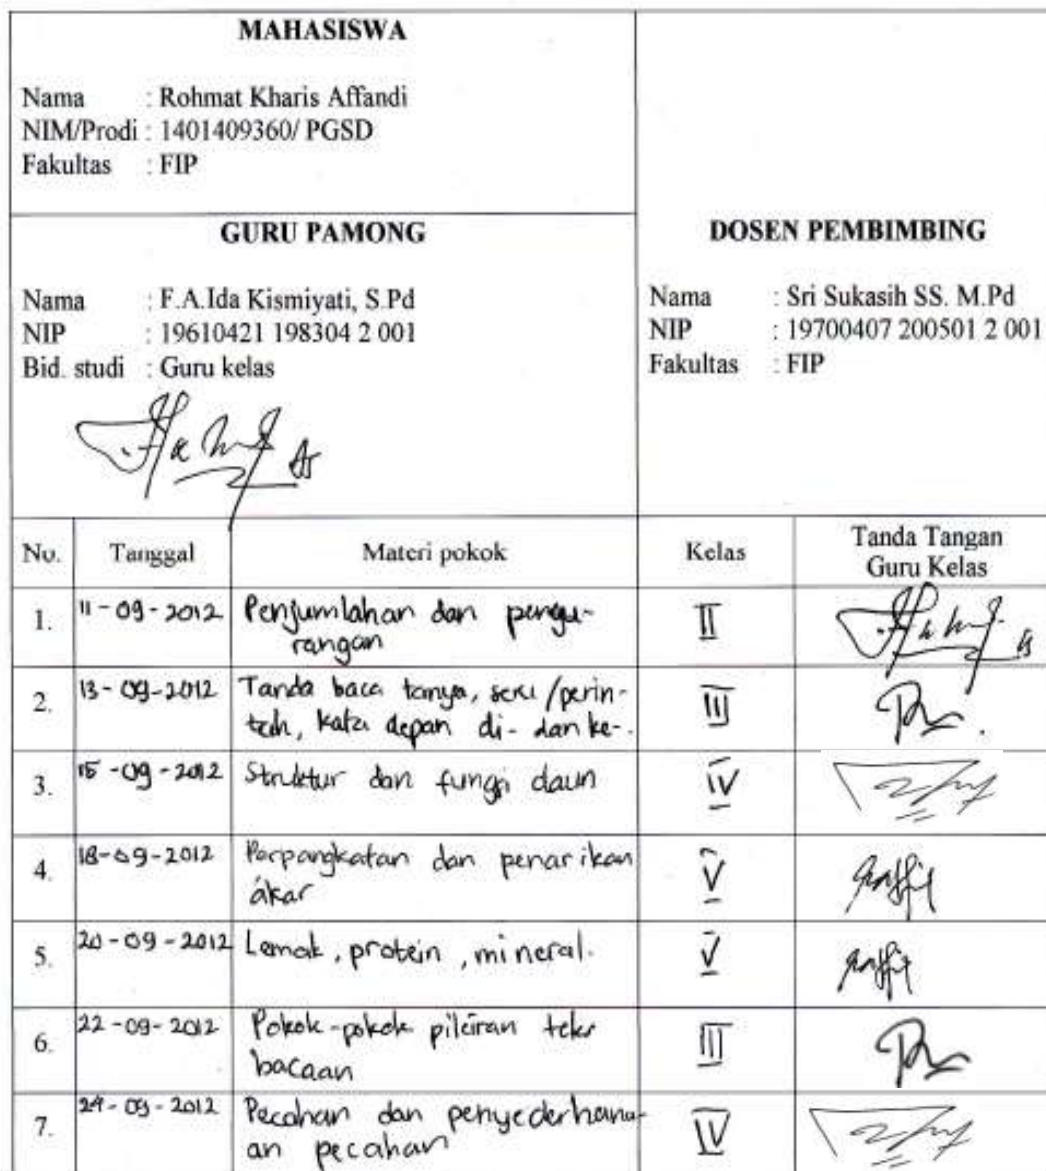 MAHASISWA
Nama : Rohmat Kharis Affandi
NIM/Prodi : 1401409360/ PGSD
Fakultas : FIP
GURU PAMONG
Nama : F.A.Ida Kismiyati, S.Pd
NIP : 19610421 198304 2 001
Bid. studi : Guru kelas
DOSEN PEMBIMBING
Nama : Sri Sukasih SS. M.Pd
NIP : 19700407 200501 2 001
Fakultas : FIP
No. Tanggal Materi pokok Kelas Tanda Tangan
Guru Kelas
1. 11-09-2012 Penjumlahan dan pengu-
rangan II
2. 13-09-2012 Tanda baca tanya, seru/perin-
tah, kata depan di- dan ke-. III
3. 15-09-2012 Struktur dan fungsi daun IV
4. 18-09-2012 Perpangkatan dan penarikan
akar V
5. 20-09-2012 Lemak, protein, mineral. V
6. 22-09-2012 Pokok-pokok pikiran teks
bacaan III
7. 24-09-2012 Pecahan dan penyederhana-
an pecahan IV